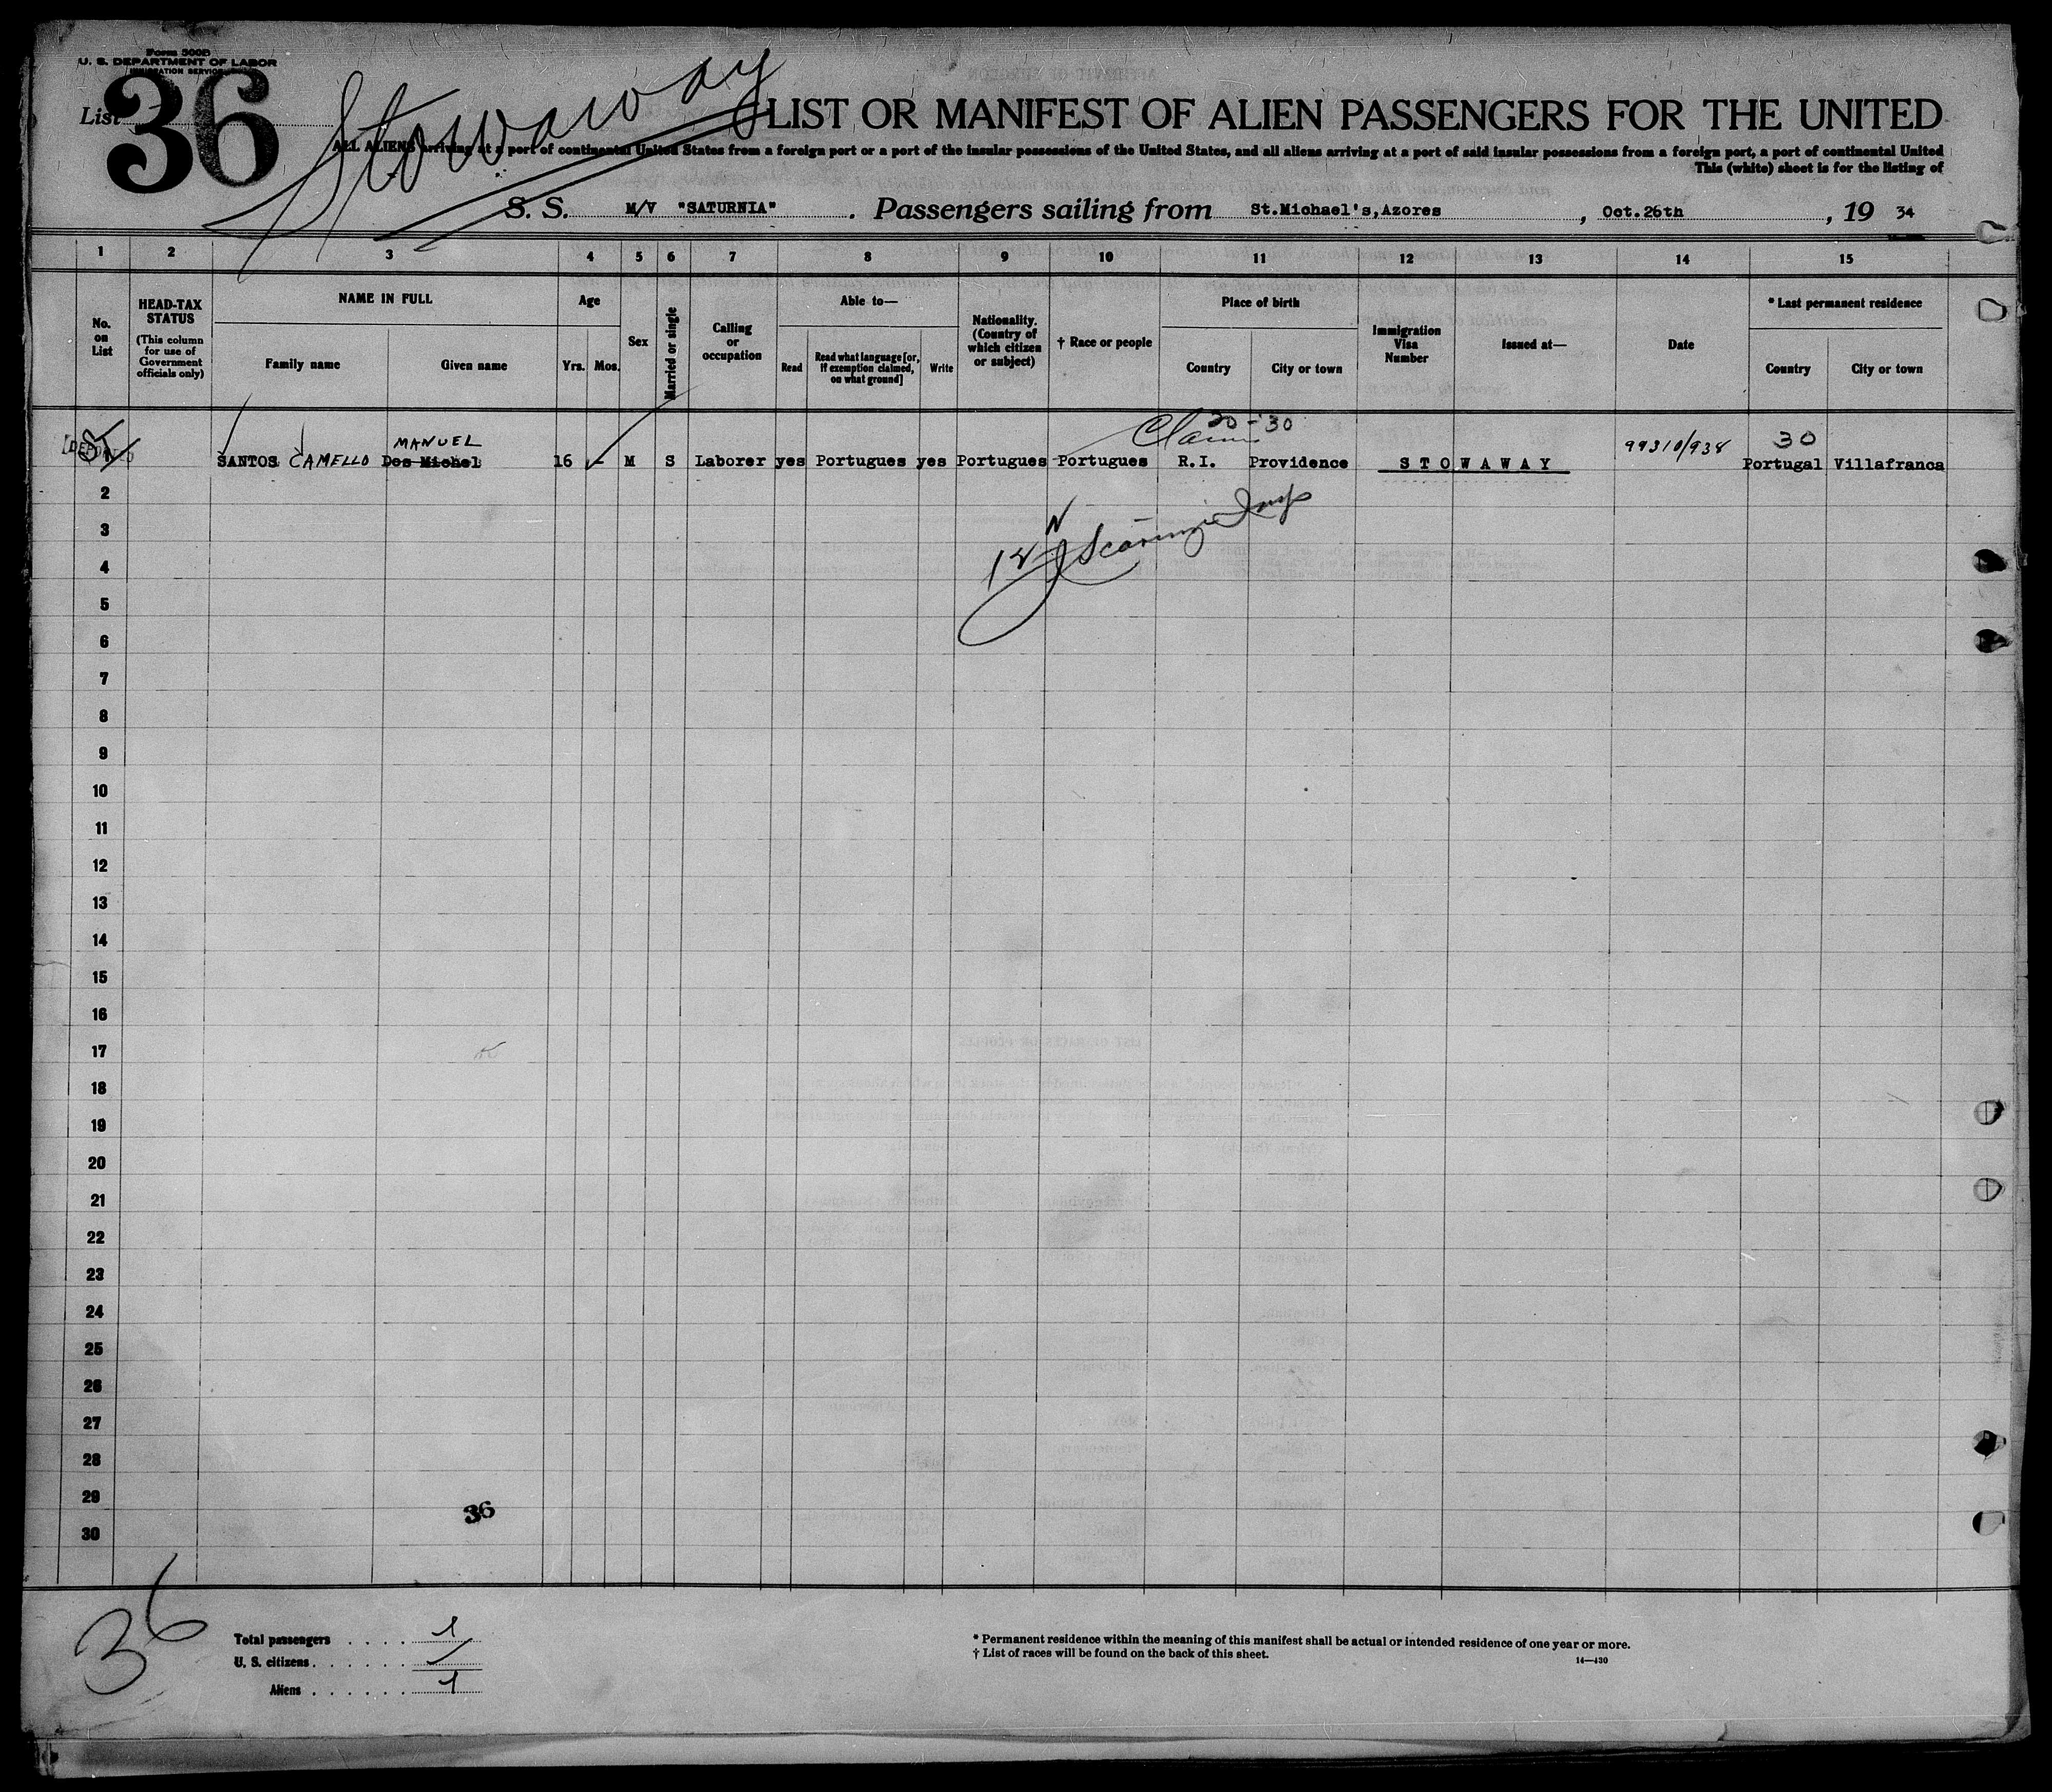 Form 500B
U. S. DEPARTMENT OF LABOR
IMMIGRATION SERVICE
List 36
Stowaway
LIST OR MANIFEST OF ALIEN PASSENGERS FOR THE UNITED
ALL ALIENS arriving at a port of continental United States from a foreign port or a port of the insular possessions of the United States, and all aliens arriving at a port of said insular possessions from a foreign port, a port of continental United
This (white) sheet is for the listing of
S. S. M/V "SATURNIA". Passengers sailing from St.Michael's,Azores, Oct.26th, 19 34
1 2 3 4 5 6 7 8 9 10 11 12 13 14 15
No. on List
HEAD-TAX STATUS (This column for use of Government officials only)
NAME IN FULL
Family name Given name
Age
Yrs. Mos.
Sex
Married or single
Calling or occupation
Able to—
Read Read what language [or, if exemption claimed, on what ground] Write
Nationality. (Country of which citizen or subject)
† Race or people
Place of birth
Country City or town
Immigration Visa Number
Issued at—
Date
* Last permanent residence
Country City or town
Claim 30-30
MANUEL
99310/938 30
DEPORTED SANTOS CAMELLO Dos Michel 16 - M S Laborer yes Portugues yes Portugues Portugues R.I. Providence STOWAWAY Portugal Villafranca
2
3
4
5
6
7
8
9
10
11
12
13
14
15
16
17
18
19
20
21
22
23
24
25
26
27
28
29
36
30
36
Total passengers . . . . 1
U. S. citizens . . . . . .
Aliens . . . . . . 1
* Permanent residence within the meaning of this manifest shall be actual or intended residence of one year or more.
† List of races will be found on the back of this sheet.
14—430